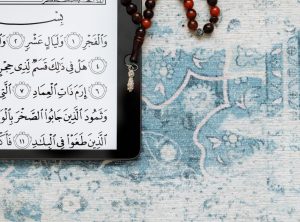 بِسْ
وَالْفَجْرِ ١ وَلَيَالٍ عَشْرٍ ٢
٤ هَلْ فِي ذَٰلِكَ قَسَمٌ لِّذِي حِجْرٍ
٦ إِرَمَ ذَاتِ الْعِمَادِ ٧ الَّتِي
وَثَمُودَ الَّذِينَ جَابُوا الصَّخْرَ بِالْوَا
الَّذِينَ طَغَوْا فِي الْبِلَٰدِ ١١ فَأَكْ